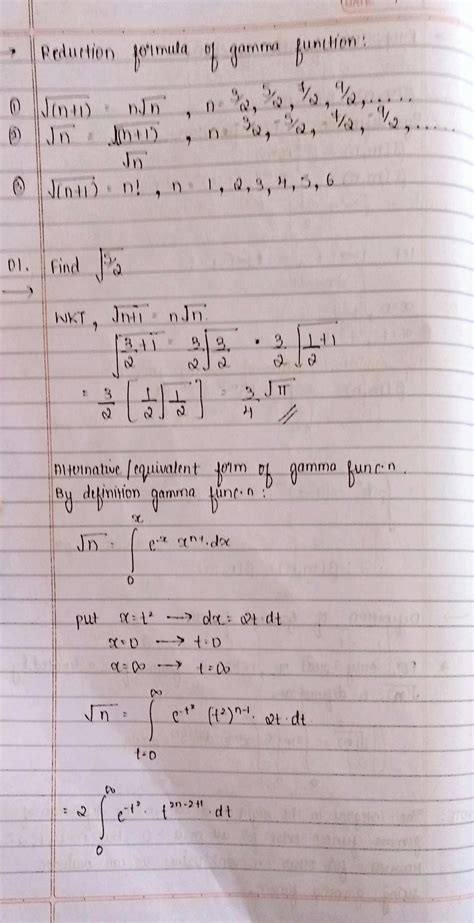 Reduction formula of gamma function:
(1) √(n+1) = n√n , n = 3/2, 5/2, 7/2, 9/2, .....
(2) √n = √(n+1) / √n , n = -3/2, -5/2, -7/2, -9/2, .....
(3) √(n+1) = n! , n = 1, 2, 3, 4, 5, 6
01. Find √5/2
WKT, √n+1 = n√n.
√3/2+1 = 3/2 √3/2 = 3/2 √1/2+1
= 3/2 [1/2 √1/2] = 3/4 √π //
Alternative/equivalent form of gamma func.n.
By definition gamma func.n:
√n = ∫₀^x e^-x x^n-1.dx
put x=t² → dx = 2t.dt
x=0 → t=0
x=∞ → t=∞
√n = ∫_t=0^∞ e^-t² (t²)^n-1. 2t.dt
= 2 ∫₀^∞ e^-t². t^2n-2+1.dt